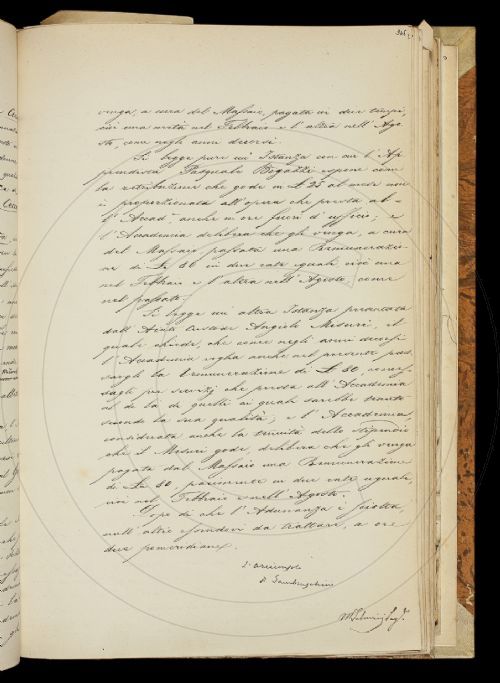 venga, a cura del Massaio, pagata in due tempi,
cioè una metà nel Febbraio e l'altra nell'Ago-
sto, come negli anni decorsi.
Si legge pure un'Istanza con cui l'Ap-
pendista Pasquale espone com
la retribuzione che gode in £ 25 al mese non
è proporzionata all'opera che presta al-
l'Accad.a anche in ore fuori d'ufficio; e
l'Accademia delibera che gli venga, a cura
del Massaio passata una Remunerazio-
ne di £ 60 in due rate eguali cioè una
nel Febbraio e l'altra nell'Agosto, come
nel passato.
Si legge un'altra Istanza presentata
dall' Custode Angiolo Misuri, il
quale chiede, che come negli anni decorsi
l'Accademia voglia anche nel presente pas-
sargli la remunerazione di £ 80,
pei servizj che presta all'Accademia
al di là di quelli ai quali sarebbe tenuto
secondo la sua qualità; e l'Accademia,
considerata anche la tenuità dello stipendio
che il Misuri gode, delibera che gli venga
pagata dal Massaio una Remunerazione
di £ 80, parimente in due rate uguali,
cioè nel Febbraio e nell'Agosto.
Dopo di che l'Adunanza è sciolta,
null'altro essendovi da trattare, a ore
due pomeridiane.
L'Arciconsolo